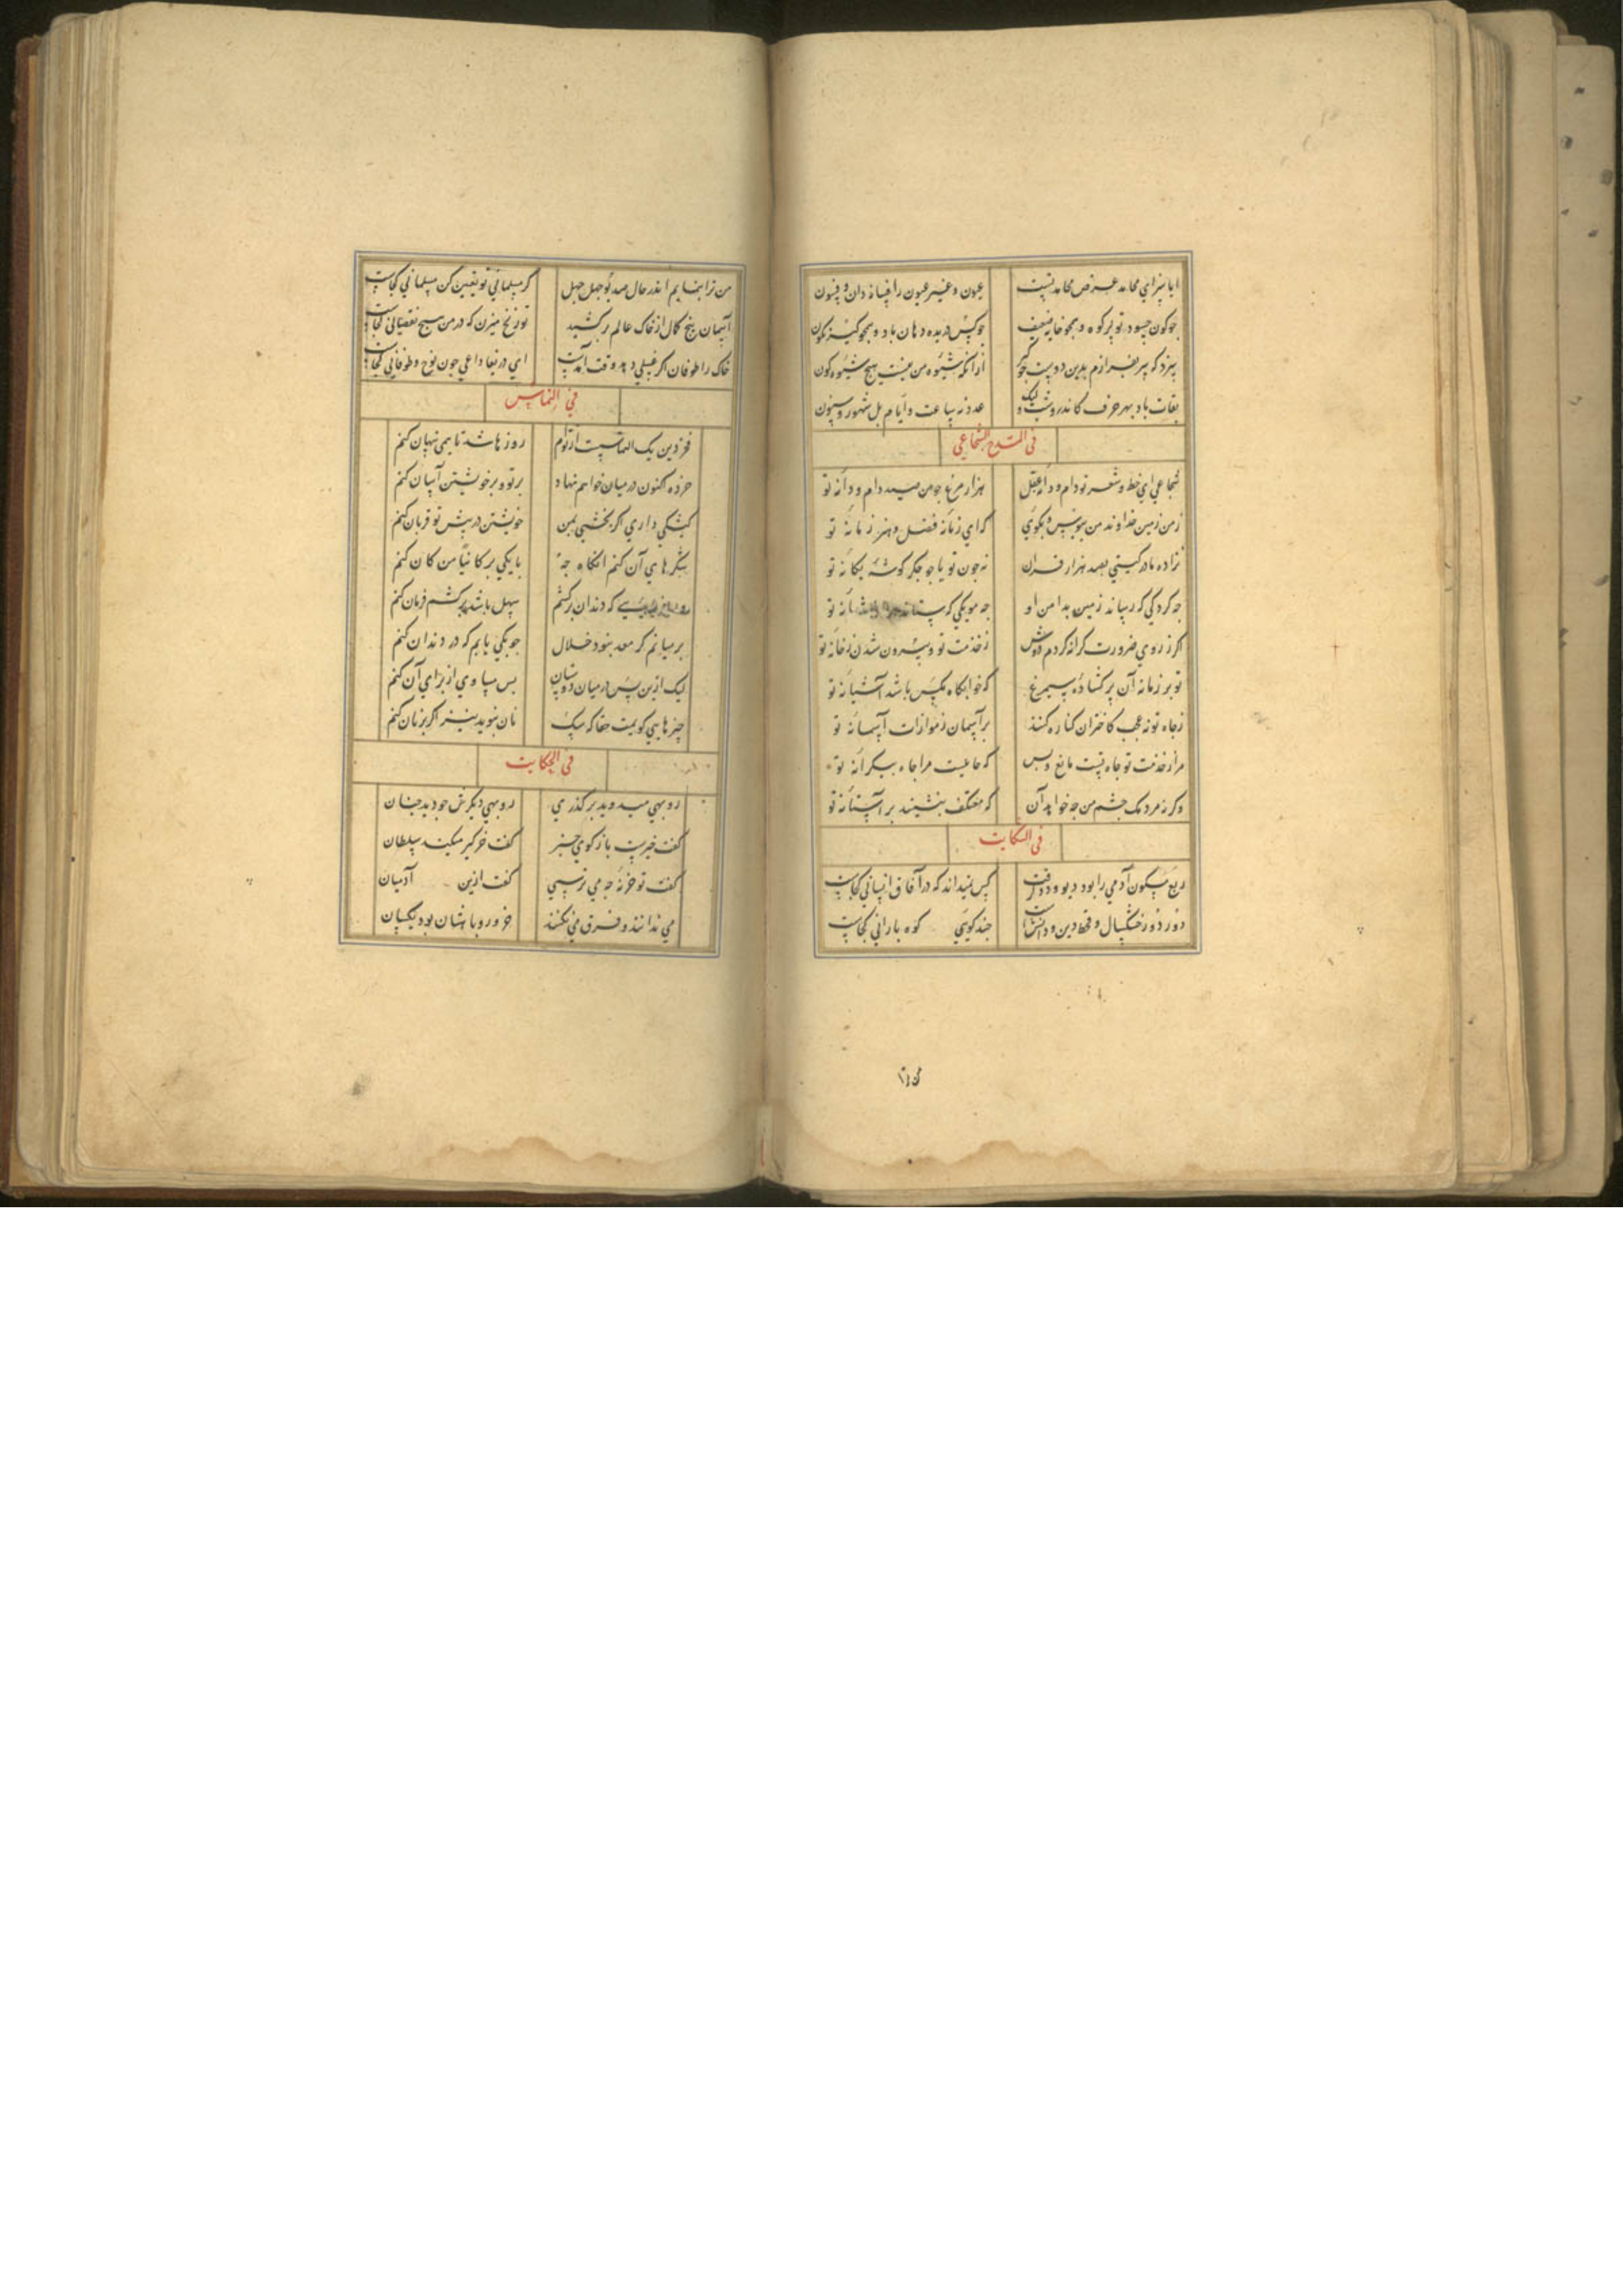 ایا سزای محامد غرض محامد تست عیون و غیر عیون را فسانه دان و فسون
عدد نه ساعت و ایام بل شهور و سنون
فی المدح الشجاعی
شجاعی ای خط و شعر تو دام و دانه عقل هزار مرغ جو من صید دام و دانه تو
زمن زمین خداوند من ببوس و بکوی که ای زمانه فضل و هنر زمانه تو
نزاده مادر کیتی بصد هزار قران نه جون تو یا جو جکر کوشه یکانه تو
جه کردکی که رساند زمین بدامن او جه مویکی که ستاند شانه تو
اکر ز روی ضرورت کرانه کردم دوش ز خدمت تو و بیرون شدن ز خانه تو
تو بر زمانه آن پر کشاده سیمرغ که خوابکاه مکس باشد آشیانه تو
ز جاه تو نه عجب کاختران کناره کنند بر آسمان ز موازات آسمانه تو
مرا ز خدمت تو جاه تست مانع و بس که حاملیست مرا جاه بیکرانه تو
وکر نه مردمک جشم من جه خواهد آن که معتکف بنشیند بر آستانه تو
فی الشکایت
ربع مسکون آدمی را بود دیو و دد کرفت کس نمیداند که در آفاق انسانی کجاست
دور دور خشکسال و قحط دین و دانشست جند کویی کوه بارانی کجاست
من ترا بنمایم اندر حال صد بوجهل جهل کر مسلمانی تو تعیین کن مسلمانی کجاست
آسمان بیخ کمال از خاک عالم برکشید تو زنخ میزن که در من سیج نقصانی کجاست
خاک را طوفان اکر غسلی دهد وقت آمدست ای دریغا داعی جون نوح و طوفانی کجاست
فی التماس
فخر دین یک التماسست از توام روزها شد تا همی نهان کنم
خرده اکنون در میان خواهم نهاد بر تو و بر خویشتن آسان کنم
کیشکی داری اکر بخشی بمن خویشتن در پیش تو قربان کنم
شکرهای آن کنم انکاه جه با یکی بر کانیا من کان کنم
که دندان برکشم سهل باشد بر کشم فرمان کنم
بر سیانم کر معد نبود خلال جوبکی یابم که در دندان کنم
لیک ازین پس در میان دوستان بس مساوی از برای آن کنم
چیزهایی کویمت حقا که سک نان نبوید نیز اکر بر نان کنم
فی الحکایت
روبهی میدوید بر کذری روبهی دیکرش جو دید جنان
کفت خیرست بازکوی خبر کفت خرکیر میکند سلطان
کفت تو خر نه جه می ترسی کفت ازین آدمیان
می ندانند و فرق می نکنند خر و روباهشان بود یکسان